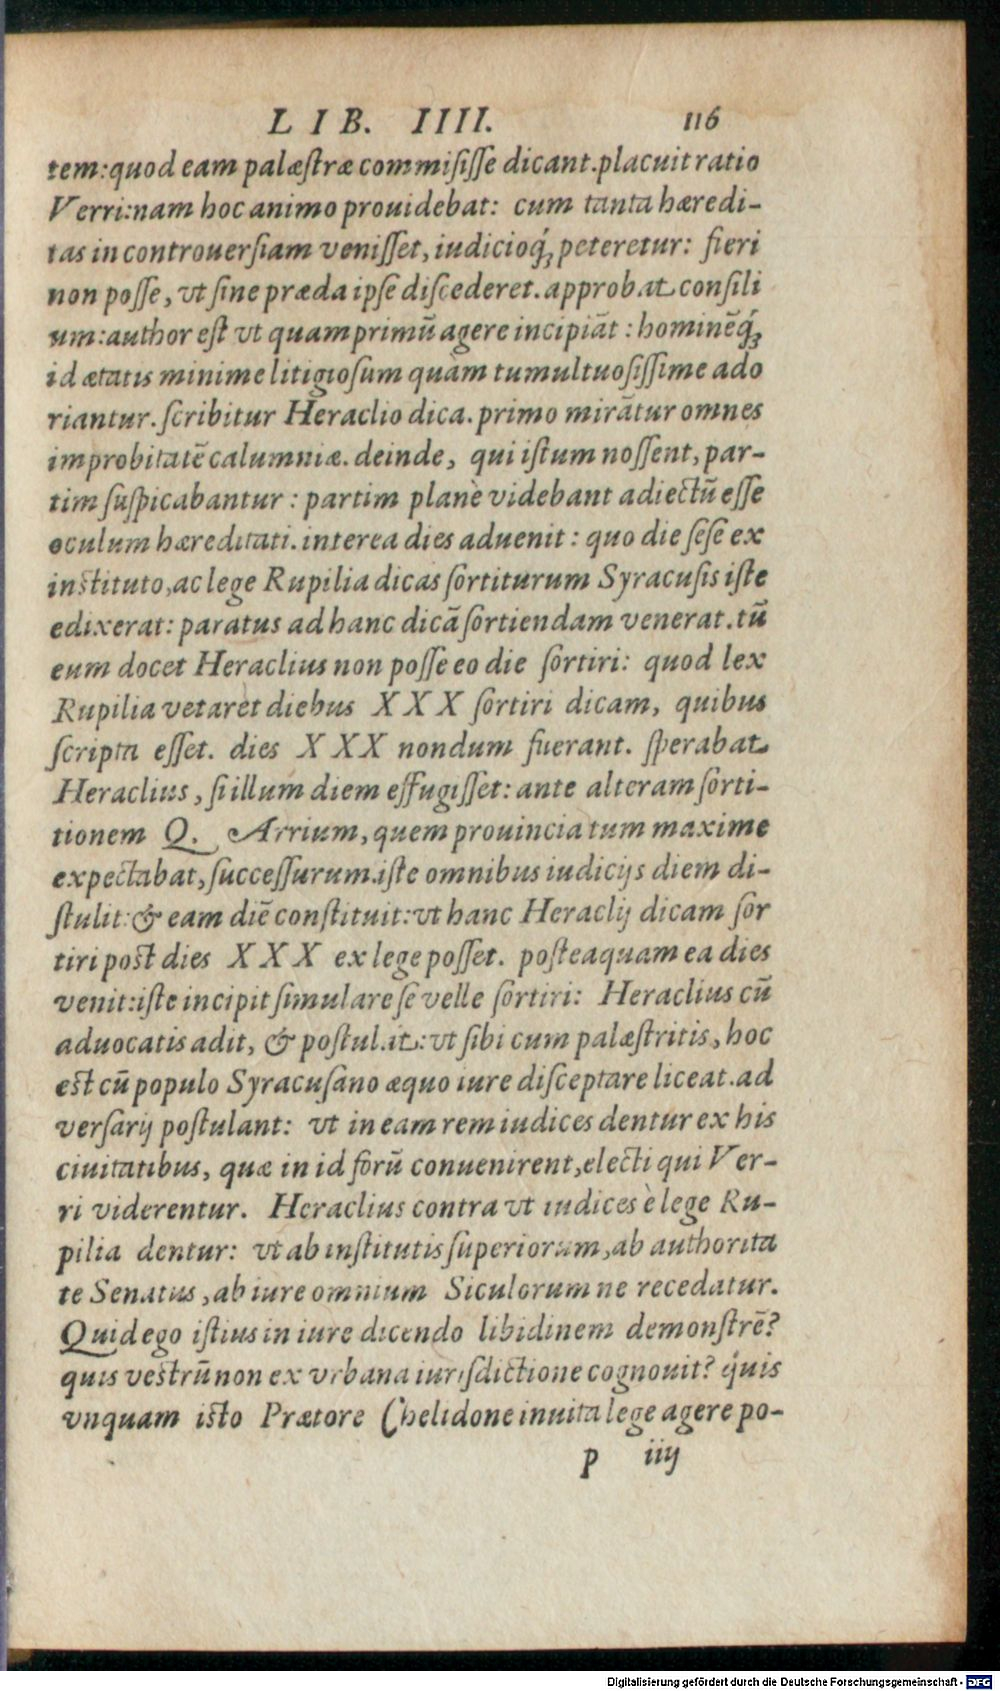 LIB. IIII. 116
tem: quod eam palæstræ commisisse dicant. placuit ratio
Verri: nam hoc animo prouidebat: cum tanta hæredi-
tas in controuersiam venisset, iudicioq́; peteretur: fieri
non posse, vt sine præda ipse discederet. approbat consili
um: author est vt quamprimū agere incipiāt: hominēq́;
id ætatis minime litigiosum quàm tumultuosissime ado
riantur. scribitur Heraclio dica. primo mirātur omnes
improbitatē calumniæ. deinde, qui istum nossent, par-
tim suspicabantur: partim planè videbant adiectū esse
oculum hæreditati. interea dies aduenit: quo die sese ex
instituto, ac lege Rupilia dicas sortiturum Syracusis iste
edixerat: paratus ad hanc dicā sortiendam venerat. tū
eum docet Heraclius non posse eo die sortiri: quod lex
Rupilia vetaret diebus XXX sortiri dicam, quibus
scripta esset. dies XXX nondum fuerant. sperabat
Heraclius, si illum diem effugisset: ante alteram sorti-
tionem Q. Arrium, quem prouincia tum maxime
expectabat, successurum. iste omnibus iudicijs diem di-
stulit: & eam diē constituit: vt hanc Heraclij dicam sor
tiri post dies XXX ex lege posset. posteaquam ea dies
venit: iste incipit simulare se velle sortiri: Heraclius cū
aduocatis adit, & postulat: vt sibi cum palæstritis, hoc
est cū populo Syracusano æquo iure disceptare liceat. ad
versarij postulant: vt in eam rem iudices dentur ex his
ciuitatibus, quæ in id forū conuenirent, electi qui Ver-
ri viderentur. Heraclius contra vt iudices è lege Ru-
pilia dentur: vt ab institutis superiorum, ab authorita
te Senatus, ab iure omnium Siculorum ne recedatur.
Quid ego istius in iure dicendo libidinem demonstrē?
quis vestrū non ex vrbana iurisdictione cognouit? quis
vnquam isto Prætore Chelidone inuita lege agere po-
p iiij
Digitalisierung gefördert durch die Deutsche Forschungsgemeinschaft - DFG